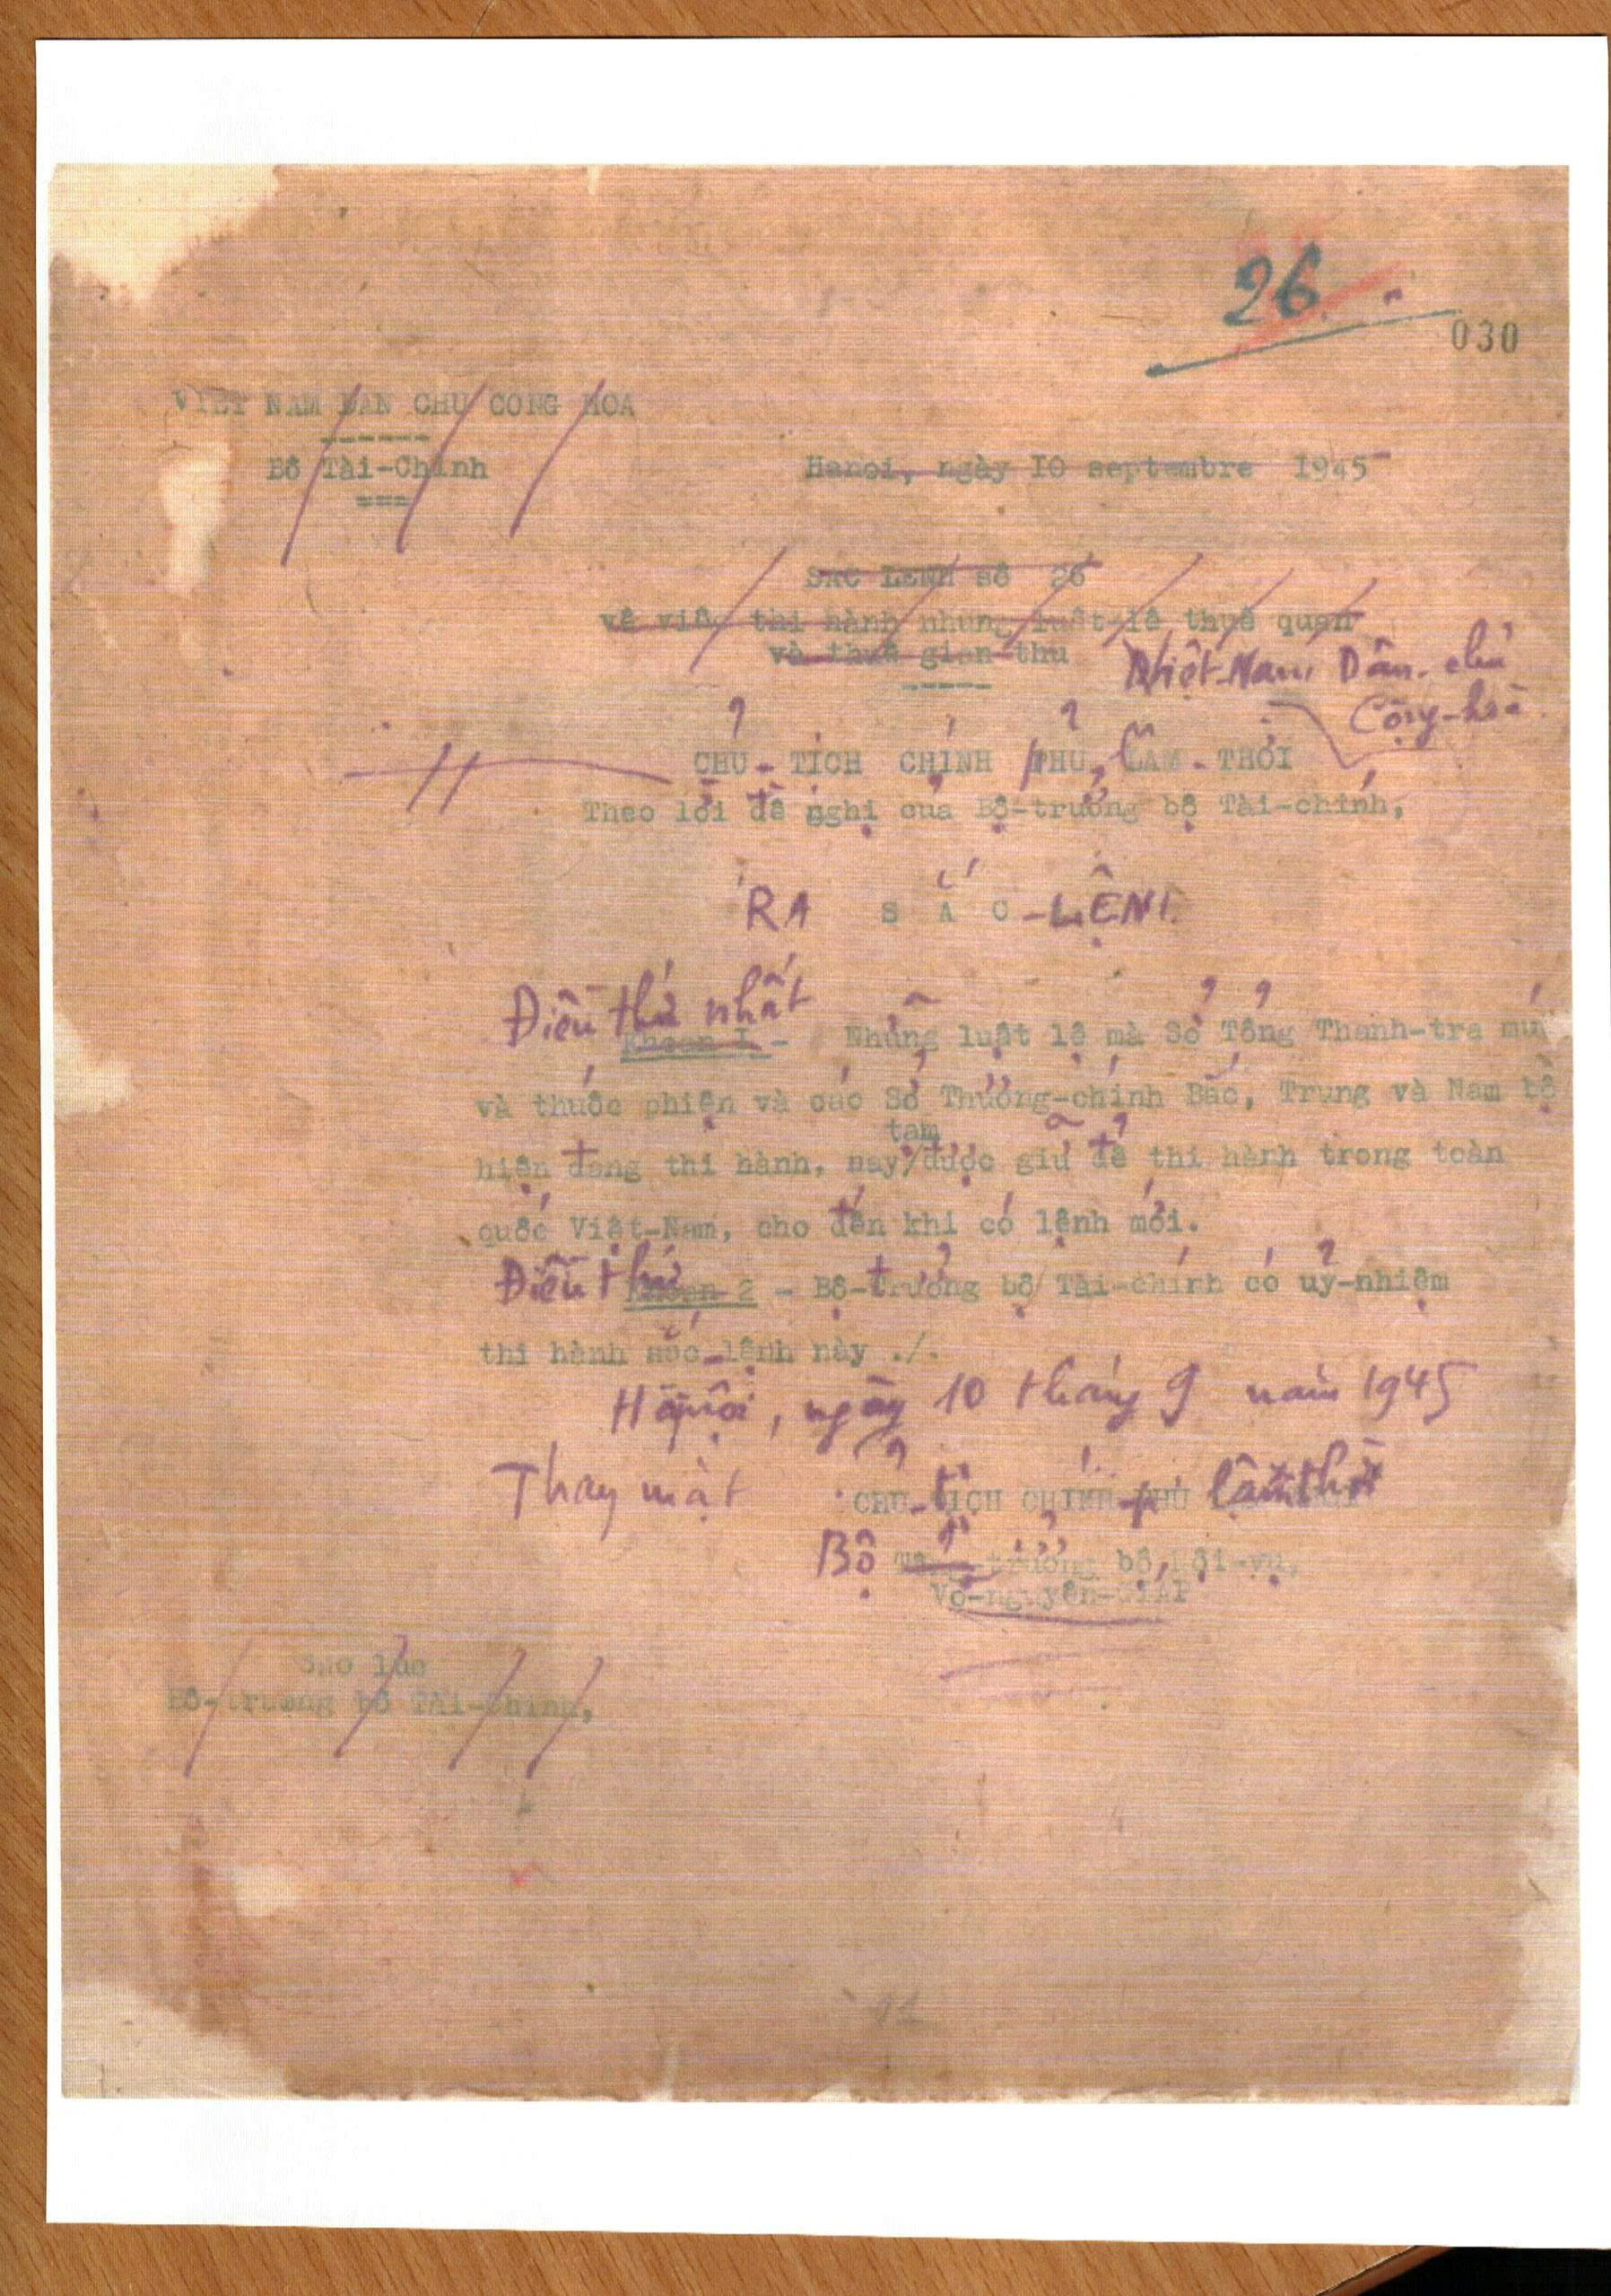 26
030
VIET NAM DAN CHU CONG HOA
Bô Tài-Chính
Hanoi, ngày 10 septembre 1945
SAC LENH số 26
về việc thi hành nhung luât-lê thuê quan
và thuê gian thu
Việt-Nam Dân-chủ
Cộng-hoà
CHỦ-TỊCH CHÍNH PHỦ LÂM-THỜI
Theo lời đề nghị của Bộ-trưởng bộ Tài-chính,
RA SẮC-LỆNH
Điều thứ nhất
Khoan I.- Những luật lệ mà Sở Tổng Thanh-tra muối
và thuốc phiện và các Sở Thương-chính Bắc, Trung và Nam bộ
tam
hiện đang thi hành, nay/được giữ để thi hành trong toàn
quốc Việt-Nam, cho đến khi có lệnh mới.
Điều thứ Khoan 2 - Bộ-trưởng bộ Tài-chính có uỷ-nhiệm
thi hành sắc-lệnh này ./.
Hànội, ngày 10 tháng 9 năm 1945
Thay mặt CHỦ-TỊCH CHÍNH-PHỦ lâm thời
Bộ trưởng bộ Nội-vụ,
Võ-nguyên-GIÁP
Bô-trương bô Tài-chinh,